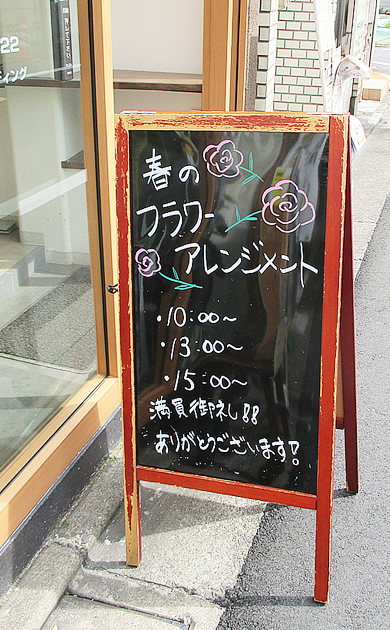 22
ィング
春の
フラワー
アレンジメント
・10:00〜
・13:00〜
・15:00〜
満員御礼!!
ありがとうございます!